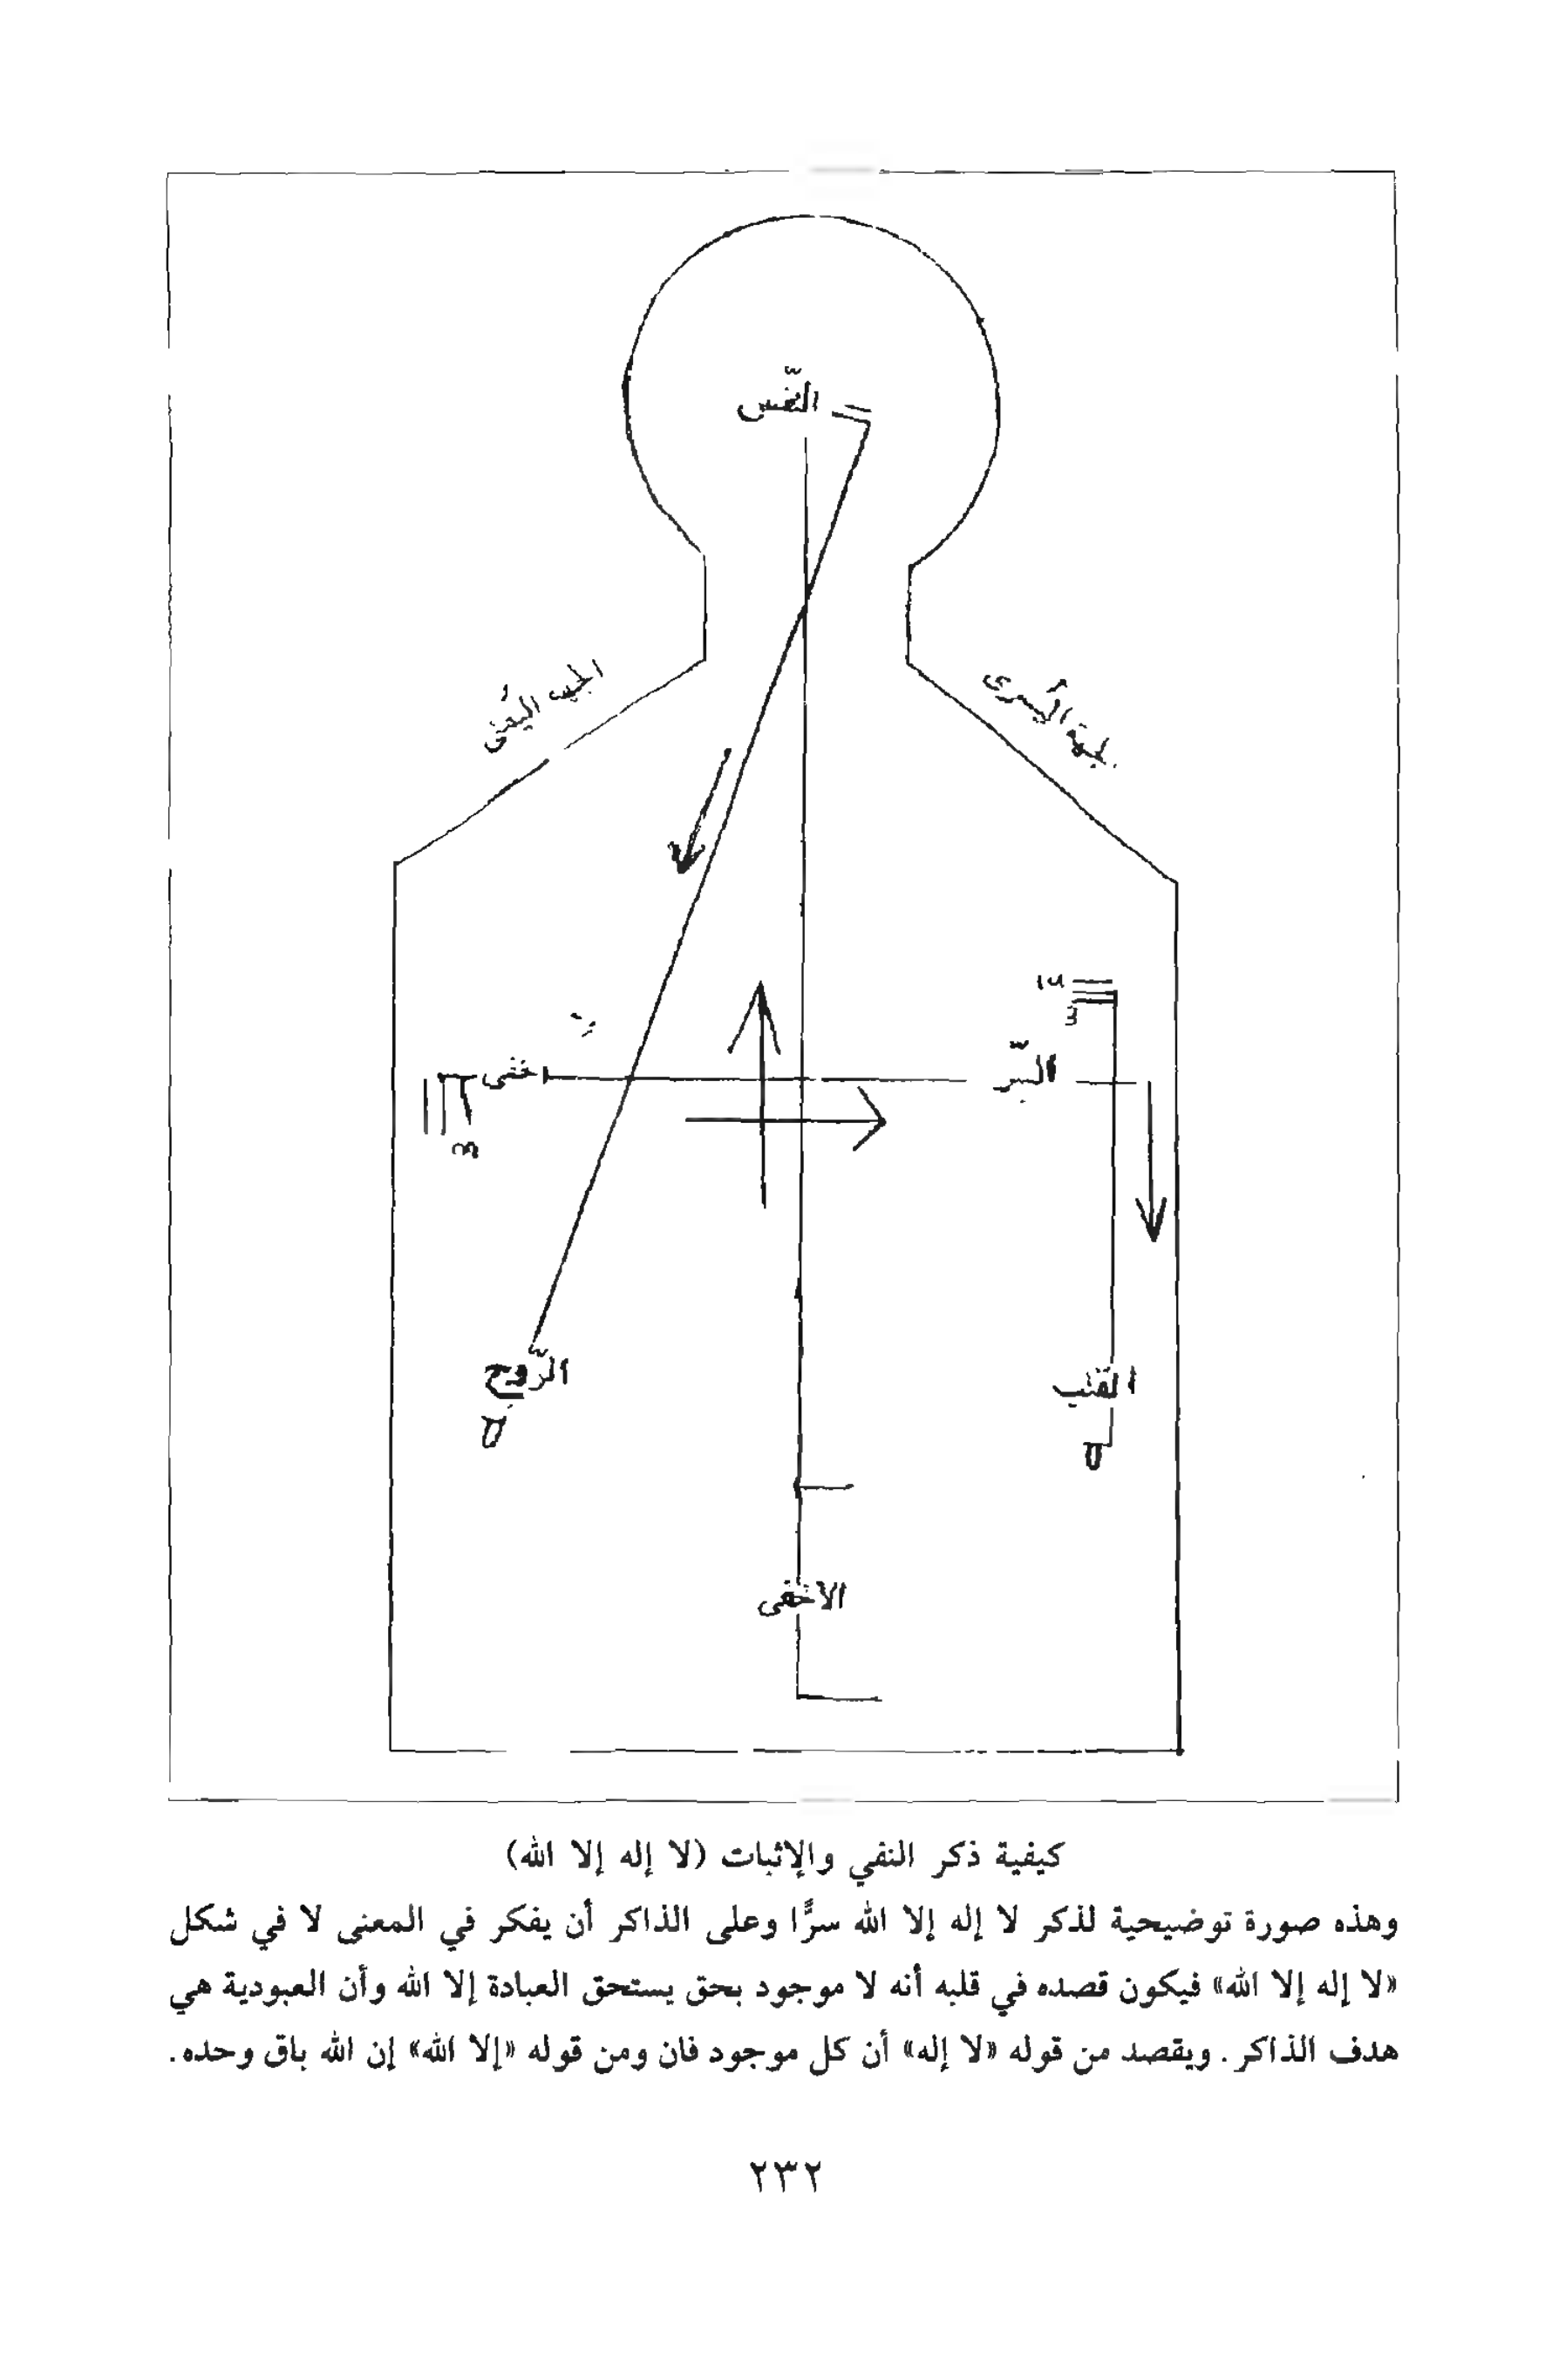 النّفس
الجهة اليُمنى
الجهة اليُسرى
السّر
خفى
الرّوح
القلب
الاخفى
كيفية ذكر النفي والإثبات (لا إله إلا الله)
وهذه صورة توضيحية لذكر لا إله إلا الله سرًّا وعلى الذاكر أن يفكر في المعنى لا في شكل
«لا إله إلا الله» فيكون قصده في قلبه أنه لا موجود بحق يستحق العبادة إلا الله وأن العبودية هي
هدف الذاكر. ويقصد من قوله «لا إله» أن كل موجود فان ومن قوله «إلا الله» إن الله باق وحده.
٢٣٢